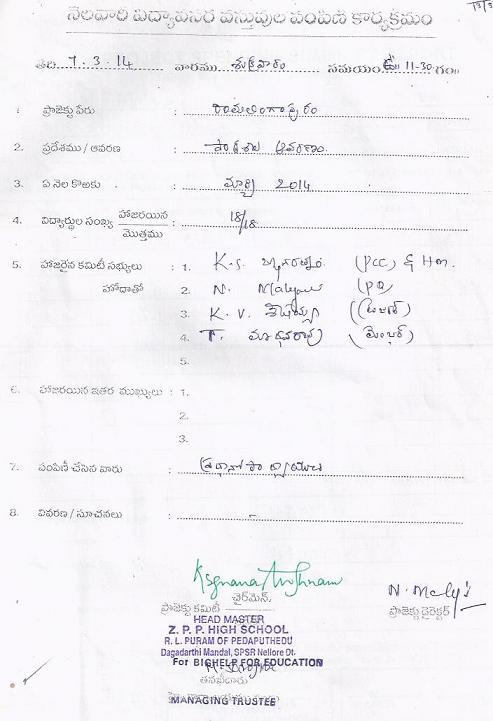 నెలవారి విద్యావసర వస్తువుల పంపిణి కార్యక్రమం
తేది 7.3.14 వారము శుక్రవారం సమయం ఉ 11-30 గం॥
1. ప్రాజెక్టు పేరు : రామలింగాపురం
2. ప్రదేశము / ఆవరణ : పాఠశాల ఆవరణం.
3. ఏ నెల కొఱకు : మార్చి 2014
4. విద్యార్థుల సంఖ్య హాజరయిన / మొత్తము : 18/18
5. హాజరైన కమిటీ సభ్యులు : 1. K.S. జ్ఞానరత్నం (PCC) & Hm.
హోదాతో 2. N. (PD)
3. K. V. శేషయ్య
4. T. మాధవరావు (మెంబర్)
5.
6. హాజరయిన ఇతర ముఖ్యులు : 1.
2.
3.
7. పంపిణీ చేసిన వారు : ప్రధానోపాధ్యాయులు
8. వివరణ / సూచనలు : -
ఛైర్మెన్.
ప్రాజెక్టు కమిటీ
ప్రాజెక్టు డైరెక్టర్
HEAD MASTER
Z. P. P. HIGH SCHOOL
R. L. PURAM OF PEDAPUTHEDU
Dagadarthi Mandal, SPSR Nellore Dt.
For BIGHELP FOR EDUCATION
తనిఖీదారు
MANAGING TRUSTEE